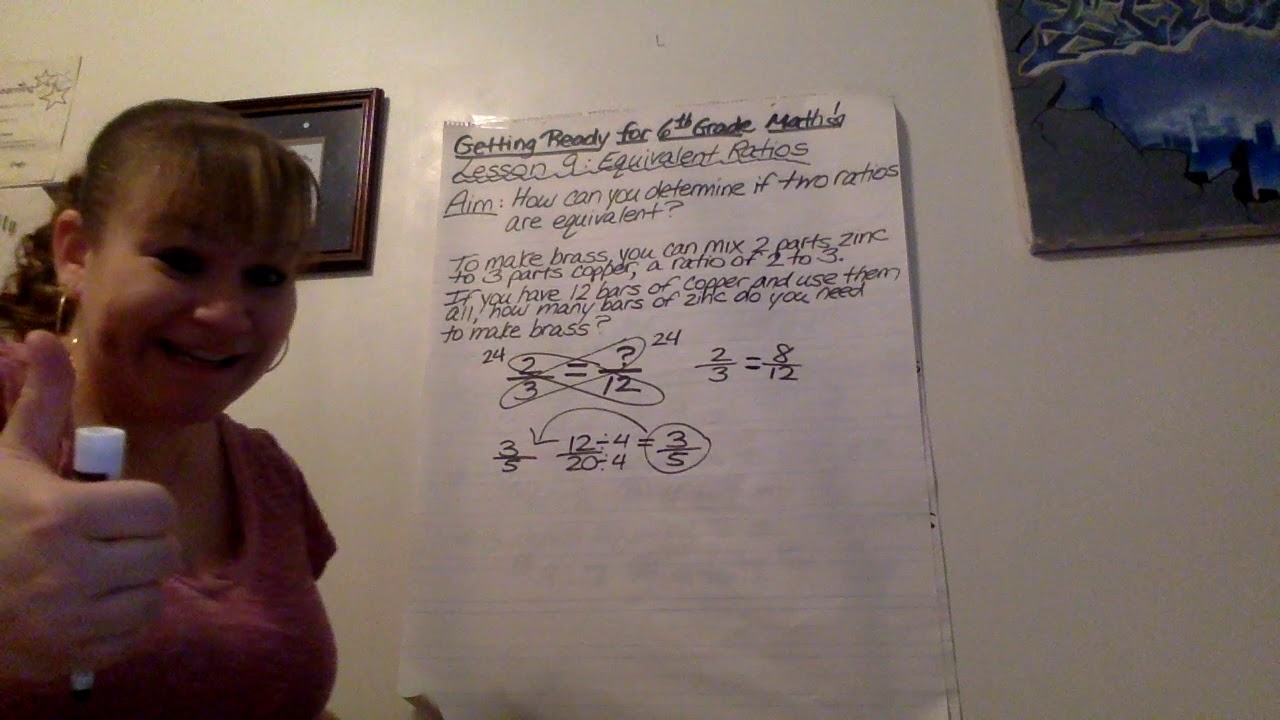 Getting Ready for 6th Grade Math!
Lesson 9: Equivalent Ratios
Aim: How can you determine if two ratios
are equivalent?
To make brass, you can mix 2 parts zinc
to 3 parts copper, a ratio of 2 to 3.
If you have 12 bars of copper and use them
all, how many bars of zinc do you need
to make brass?
24 2/3 = ?/12 24 2/3 = 8/12
3/5 12÷4/20÷4 = 3/5